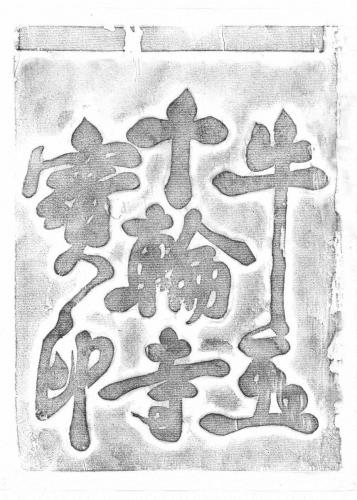 牛玉
十輪寺
寳印